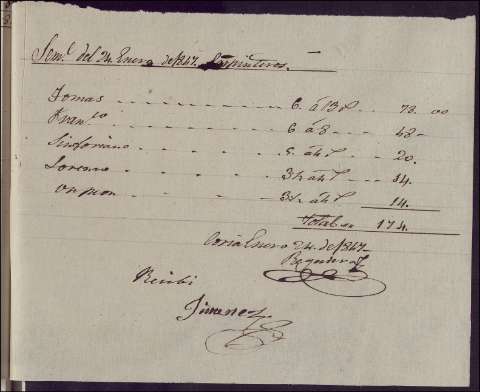 Sem.ª del 24 Enero de 1847. Carpinteros.
Tomas 6. á 13 r 78. 00
Fran.co 6 á 8 48
Sinforiano 5. á 4 r 20.
Lorenzo 3½ á 4 r 14
3½ á 4 r 14.
Total 174.
Coria Enero 24 de 1847
Recibi
Jimenez